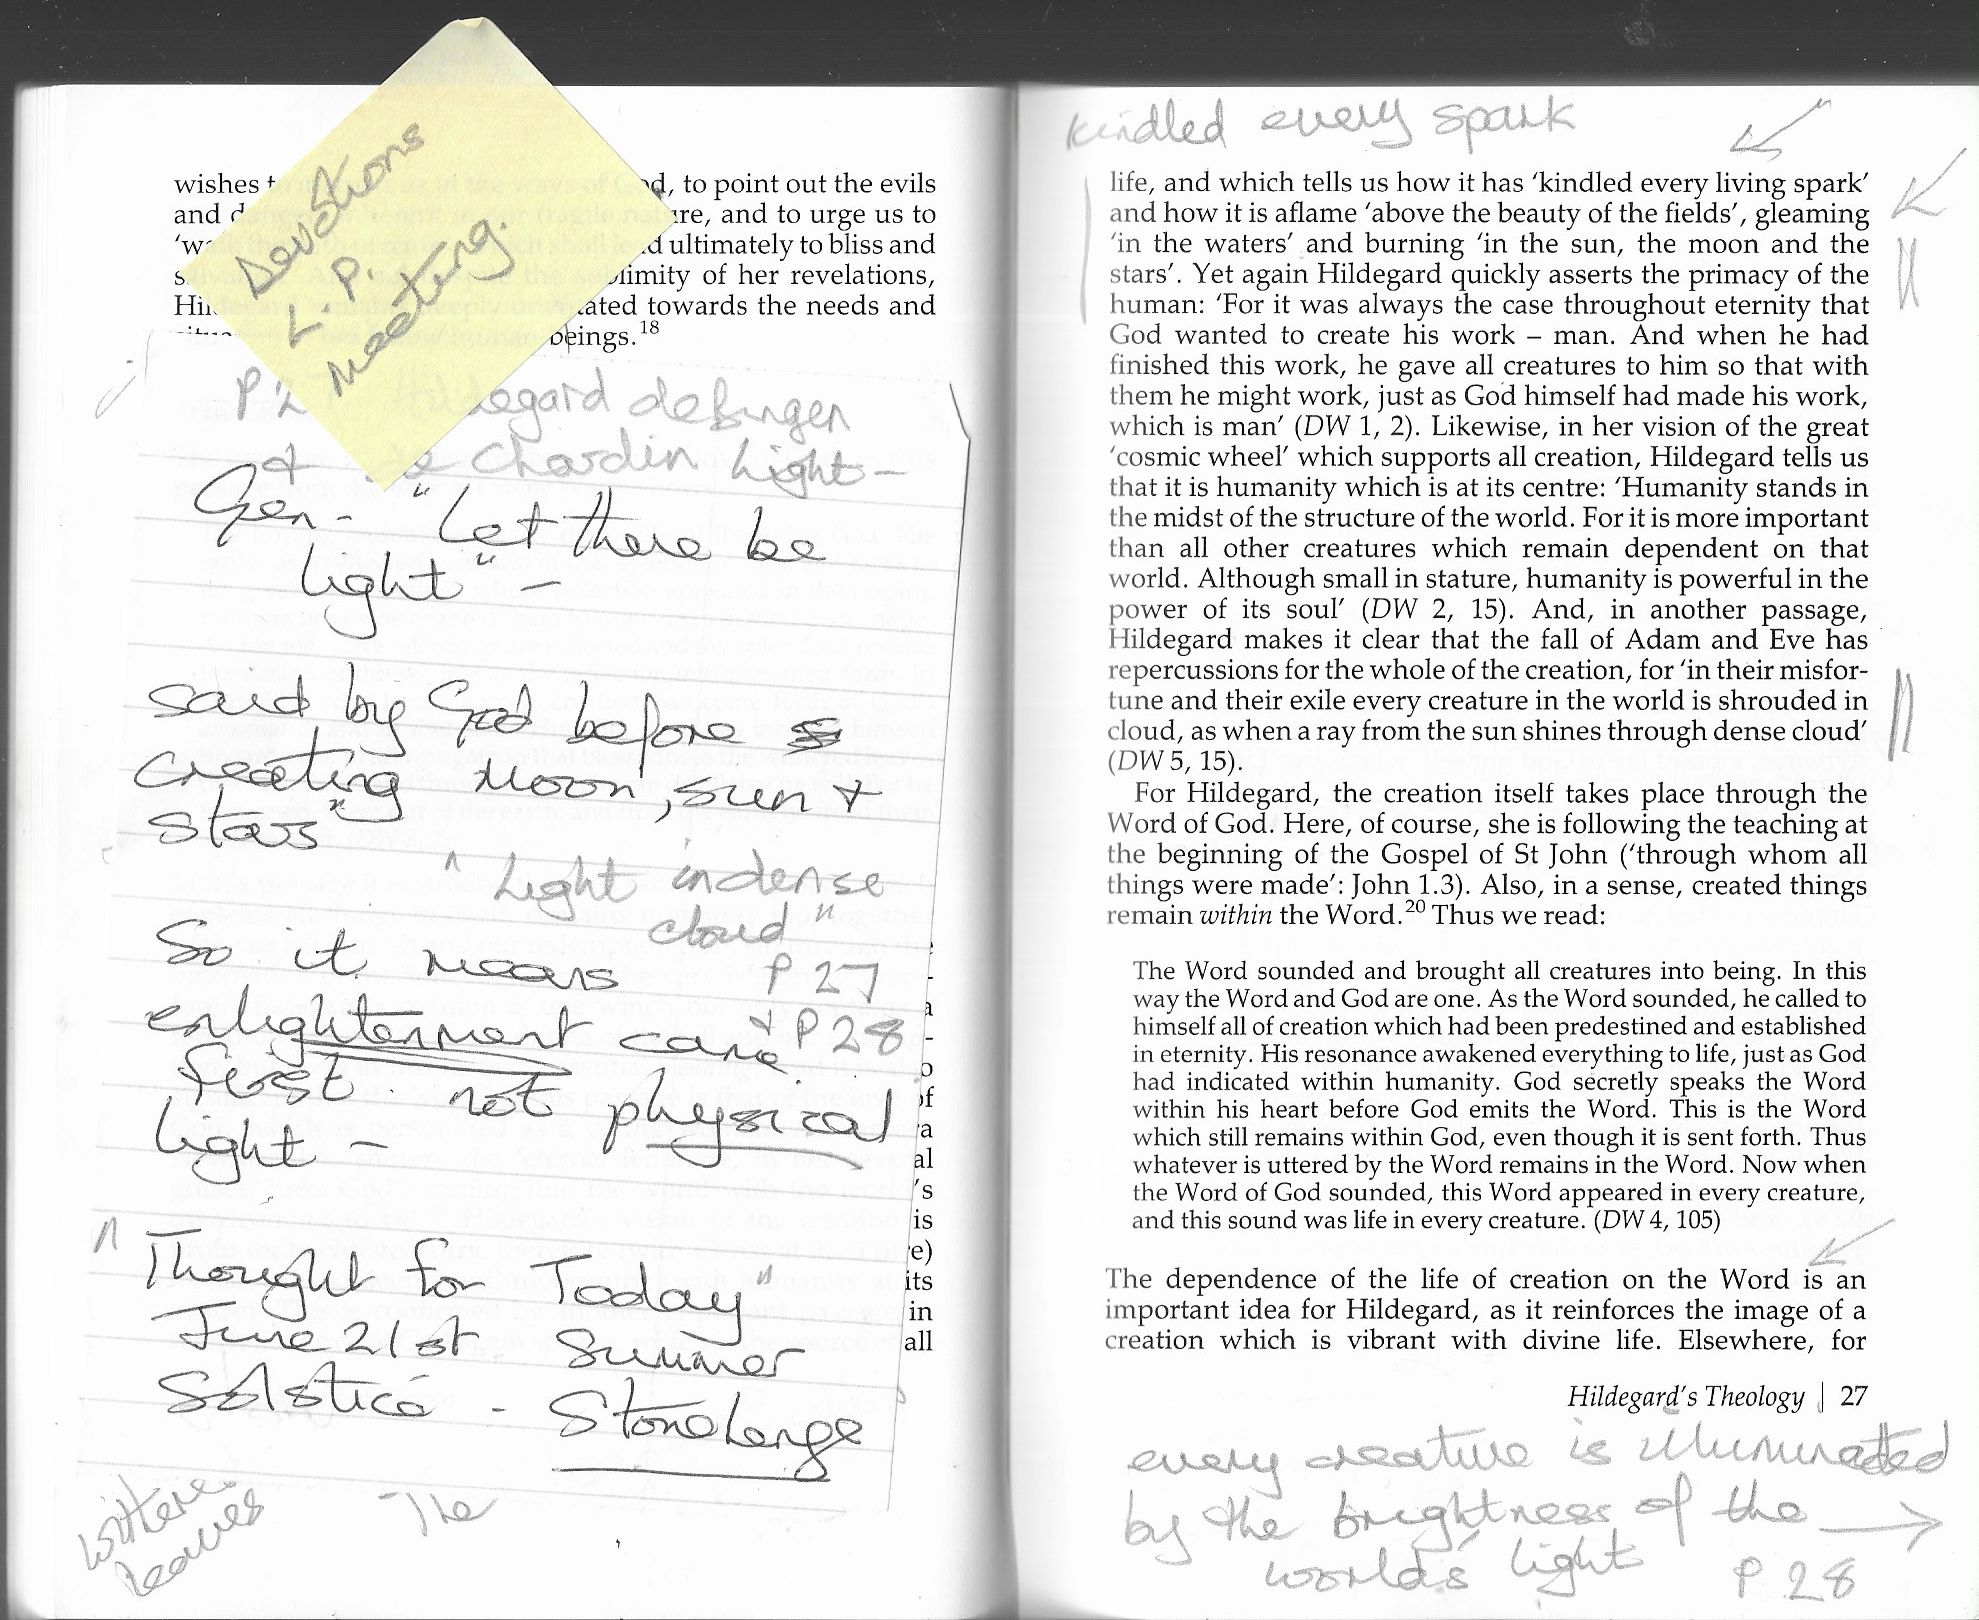 Devotions
L. P.
Meeting.
wishes
and
'wa
s
Hil
d, to point out the evils
re, and to urge us to
d ultimately to bliss and
limity of her revelations,
ated towards the needs and
beings.18
P 27 Hildegard
+ de Chardin Light –
Gen – "Let there be
light" –
said by God before
creating Moon, sun +
stars"
"Light in dense
cloud"
P 27
+ P 28
So it means
enlightenment came
first not physical
light –
"Thought for Today"
June 21st Summer
Solstice – Stonehenge
leaves
The
a
al
's
is
e)
its
in
all
kindled every spark
life, and which tells us how it has 'kindled every living spark'
and how it is aflame 'above the beauty of the fields', gleaming
'in the waters' and burning 'in the sun, the moon and the
stars'. Yet again Hildegard quickly asserts the primacy of the
human: 'For it was always the case throughout eternity that
God wanted to create his work – man. And when he had
finished this work, he gave all creatures to him so that with
them he might work, just as God himself had made his work,
which is man' (DW 1, 2). Likewise, in her vision of the great
'cosmic wheel' which supports all creation, Hildegard tells us
that it is humanity which is at its centre: 'Humanity stands in
the midst of the structure of the world. For it is more important
than all other creatures which remain dependent on that
world. Although small in stature, humanity is powerful in the
power of its soul' (DW 2, 15). And, in another passage,
Hildegard makes it clear that the fall of Adam and Eve has
repercussions for the whole of the creation, for 'in their misfor-
tune and their exile every creature in the world is shrouded in
cloud, as when a ray from the sun shines through dense cloud'
(DW 5, 15).
For Hildegard, the creation itself takes place through the
Word of God. Here, of course, she is following the teaching at
the beginning of the Gospel of St John ('through whom all
things were made': John 1.3). Also, in a sense, created things
remain within the Word.20 Thus we read:
The Word sounded and brought all creatures into being. In this
way the Word and God are one. As the Word sounded, he called to
himself all of creation which had been predestined and established
in eternity. His resonance awakened everything to life, just as God
had indicated within humanity. God secretly speaks the Word
within his heart before God emits the Word. This is the Word
which still remains within God, even though it is sent forth. Thus
whatever is uttered by the Word remains in the Word. Now when
the Word of God sounded, this Word appeared in every creature,
and this sound was life in every creature. (DW 4, 105)
The dependence of the life of creation on the Word is an
important idea for Hildegard, as it reinforces the image of a
creation which is vibrant with divine life. Elsewhere, for
Hildegard's Theology | 27
every creature is illuminated
by the brightness of the
world's light P 28